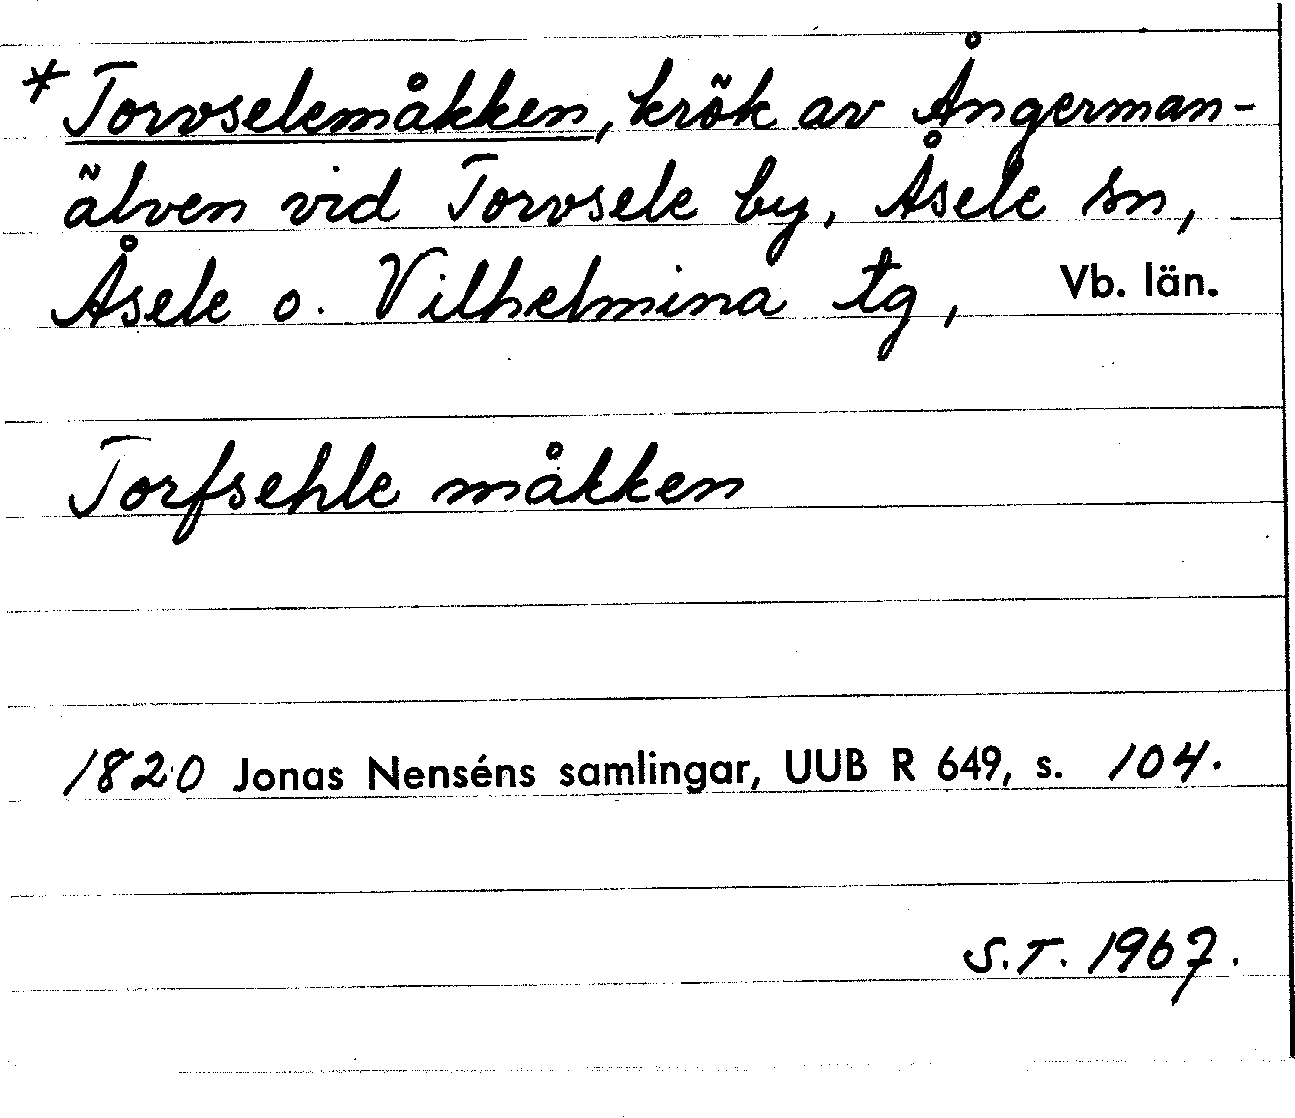 * Torvselemåkken, krök av Ångerman-
älven vid Torvsele by, Åsele sn,
Åsele o. Vilhelmina tg, Vb. län.
Torfsehle måkken
1820 Jonas Nenséns samlingar, UUB R 649, s. 104.
S.T. 1967.